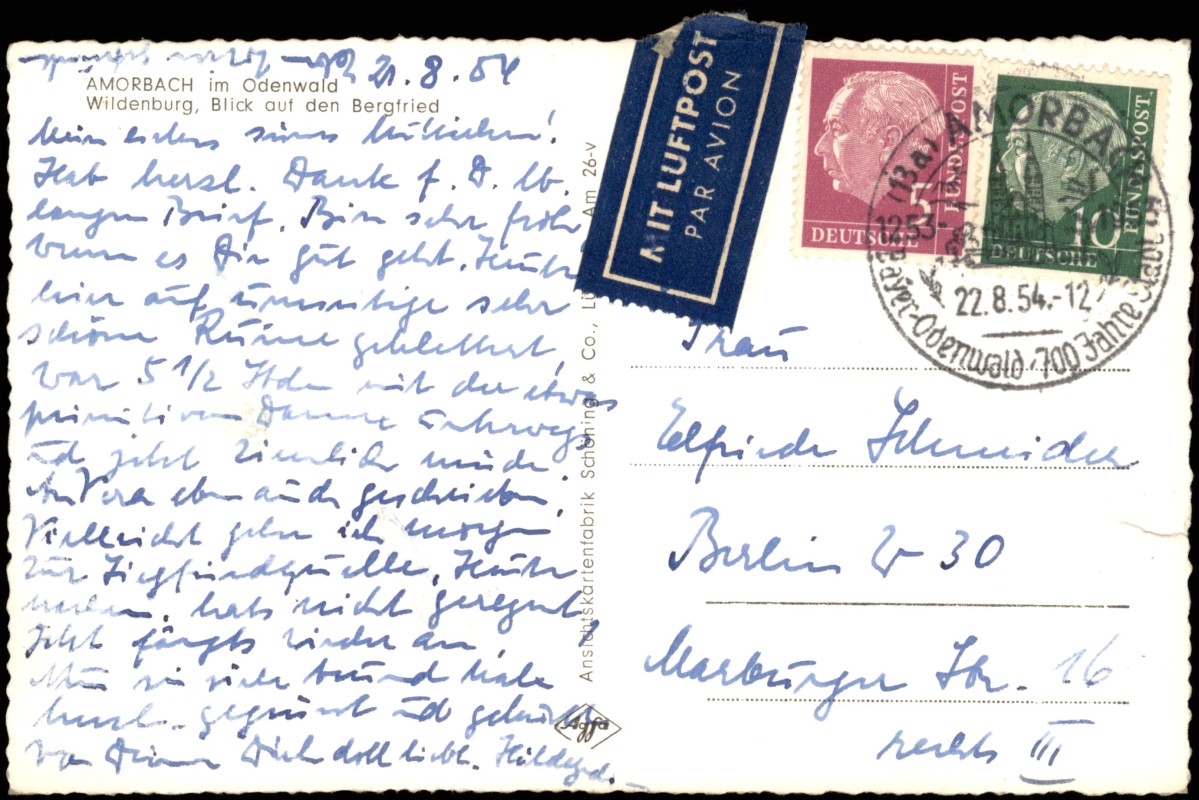 21.8.54
AMORBACH im Odenwald
Wildenburg, Blick auf den Bergfried
Mein süsses Muttichen!
Hab herzl. Dank f. D. lb.
langen Brief. Bin sehr froh
wenn es Dir gut geht. Heute
hier auf sehr
schöne Ruine geklettert,
war 5 1/2 Std mit der etwas
primitiven Dame unterwegs
und jetzt ziemlich müde
An Vera eben auch geschrieben,
Vielleicht gehe ich morgen
zur Siegfriedquelle. Heute
hats nicht geregnet,
Jetzt fängts wieder an,
Nun sei viele tausend Male
herzl. gegrüsst und geküsst
von Deiner Dich doll liebh. Hildegd.
Ansichtskartenfabrik Schöning & Co., Lü Am 26-v
Agfa
MIT LUFTPOST
PAR AVION
DEUTSCHE BUNDESPOST 5
DEUTSCHE BUNDESPOST 10
(13a) AMORBACH
1253
22.8.54.-12
Bayer-Odenwald 700 Jahre Stadt
Frau
Elfriede Schneider
Berlin W 30
Marburger Str. 16
rechts III